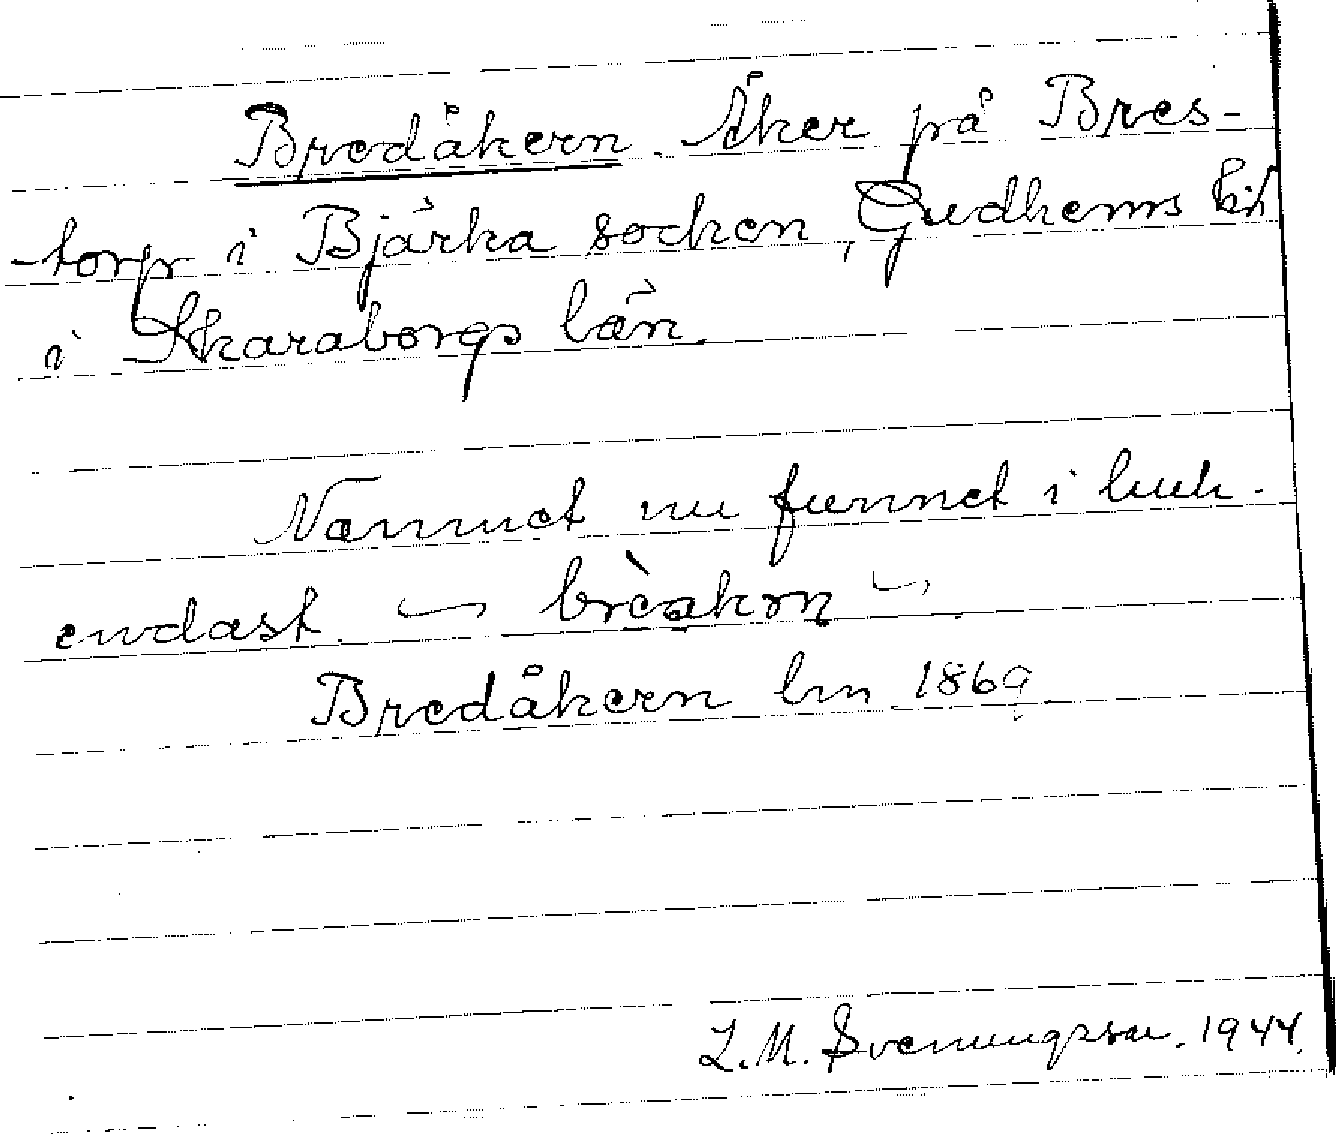 Bredåkern. Åker på Bres-
torp i Bjärka socken, Gudhems
i Skaraborgs län.
Namnet nu funnet i
endast
Bredåkern lm 1869
L.M. Svenungsson. 1944.